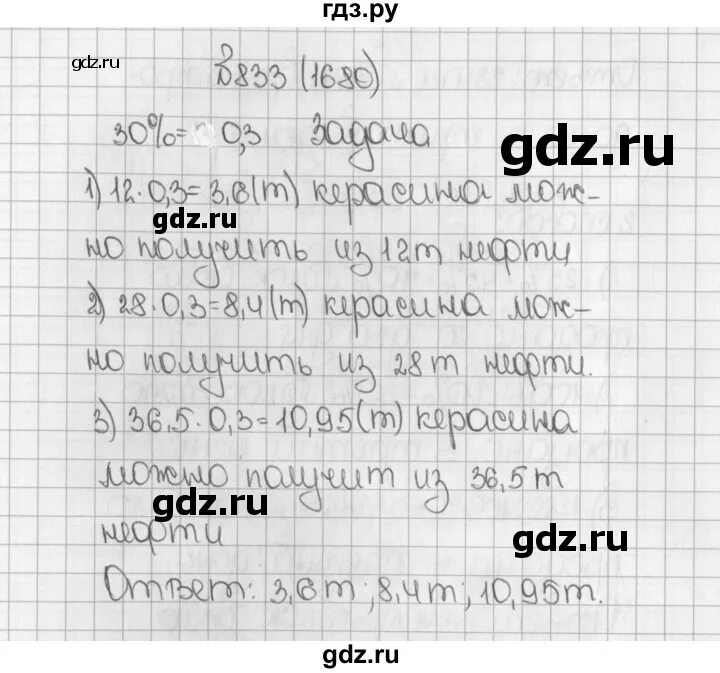 гдз.ру
gdz.ru
№833 (1680)
30%= 0,3 Задача
gdz.ru
1) 12·0,3=3,6(т) керасина мож-
gdz.ru
но получить из 12т нефти
2) 28·0,3=8,4(т) керасина мож-
но получить из 28т нефти.
3) 36,5·0,3=10,95(т) керасина
можно получит из 36,5т
gdz.ru
нефти
gdz.ru
Ответ: 3,6т; 8,4т; 10,95т.
gdz.ru